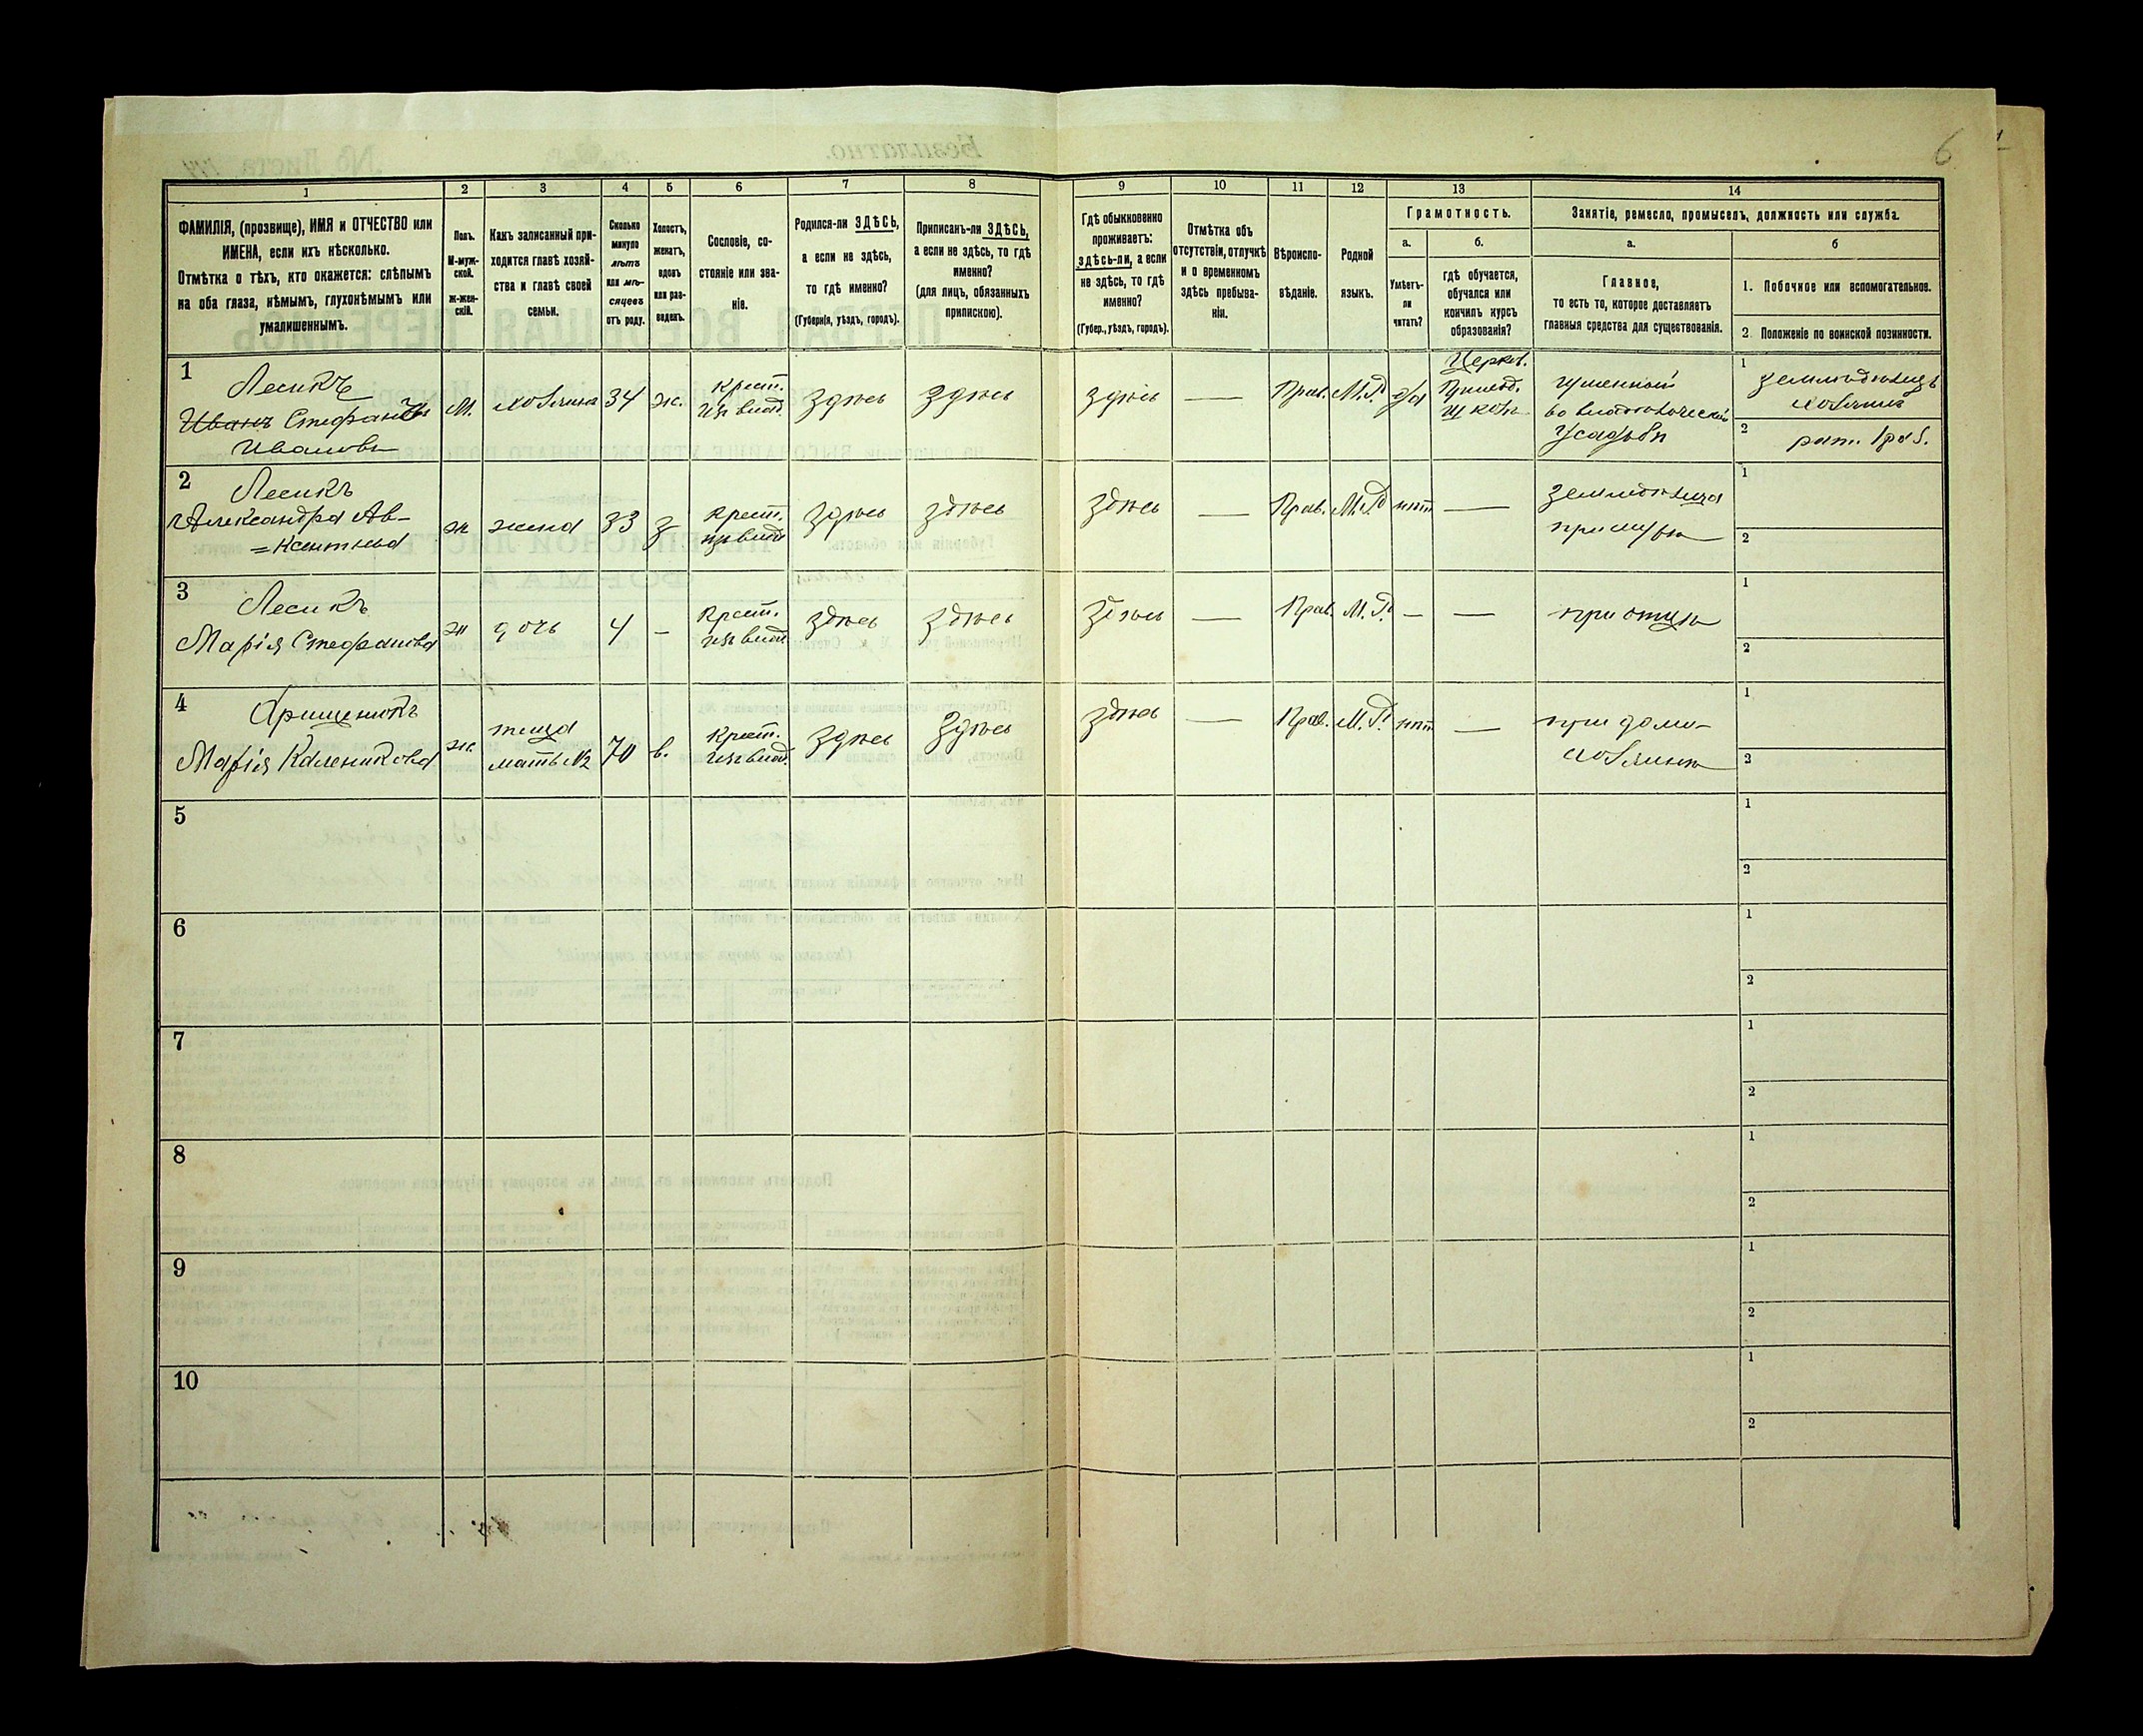 6
1 2 3 4 5 6 7 8 9 10 11 12 13 14
ФАМИЛІЯ, (прозвище), ИМЯ и ОТЧЕСТВО или
ИМЕНА, если ихъ нѣсколько.
Отмѣтка о тѣхъ, кто окажется: слѣпымъ
на оба глаза, нѣмымъ, глухонѣмымъ или
умалишеннымъ.
Полъ.
М-муж-
ской.
Ж-жен-
скій.
Какъ записанный при-
ходится главѣ хозяй-
ства и главѣ своей
семьи.
Сколько
минуло
лѣтъ
или мѣ-
сяцевъ
отъ роду.
Холостъ,
женатъ,
вдовъ
или раз-
веденъ.
Сословіе, со-
стояніе или зва-
ніе.
Родился-ли ЗДѢСЬ,
а если не здѣсь,
то гдѣ именно?
(Губернія, уѣздъ, городъ).
Приписанъ-ли ЗДѢСЬ,
а если не здѣсь, то гдѣ
именно?
(для лицъ, обязанныхъ
припискою).
Гдѣ обыкновенно
проживаетъ:
здѣсь-ли, а если
не здѣсь, то гдѣ
именно?
(Губер., уѣздъ, городъ).
Отмѣтка объ
отсутствіи, отлучкѣ
и о временномъ
здѣсь пребыва-
ніи.
Вѣроиспо-
вѣданіе.
Родной
языкъ.
Грамотность.
а.
Умѣетъ-
ли
читать?
б.
гдѣ обучается,
обучался или
кончилъ курсъ
образованія?
Занятіе, ремесло, промыселъ, должность или служба.
а.
Главное,
то есть то, которое доставляетъ
главныя средства для существованія.
б
1. Побочное или вспомогательное.
2. Положеніе по воинской повинности.
1
Лесикъ
Иванъ Стефанъ
Ивановъ
М.
хозяинъ
34
ж.
Крест.
изъ влад.
здѣсь
здѣсь
здѣсь
—
Прав.
М.Р.
да
Церков.
Приход.
школѣ
во владѣльческой
усадьбѣ
1
земледѣлецъ
хозяинъ
2
рат. 1 раз.
2
Лесикъ
Александра Ав-
=ксентьева
ж
жена
33
з
Крест.
изъ влад
здѣсь
здѣсь
здѣсь
—
Прав.
М.Р
нѣт
—
земледѣлица
при мужѣ
1
2
3
Лесикъ
Марія Стефанова
ж
дочь
4
–
Крест.
изъ влад
здѣсь
здѣсь
здѣсь
—
Прав.
М.Р.
–
—
при отцѣ
1
2
4
Марія Каленикова
ж.
теща
мать №2
70
в.
Крест.
изъ влад.
здѣсь
здѣсь
здѣсь
—
Прав.
М.Р.
нѣт
—
при домо-
хозяинѣ
1
2
5
1
2
6
1
2
7
1
2
8
1
2
9
1
2
10
1
2